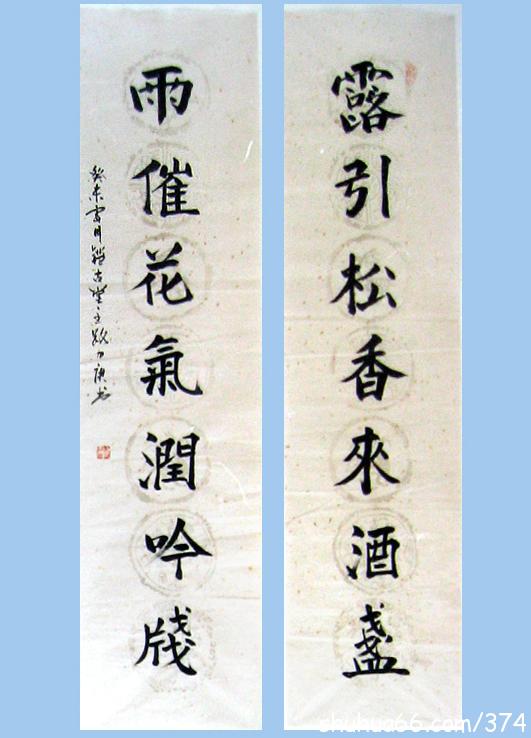 露引松香來酒盞
雨催花氣潤吟牋
癸未
shuhua66.com/374